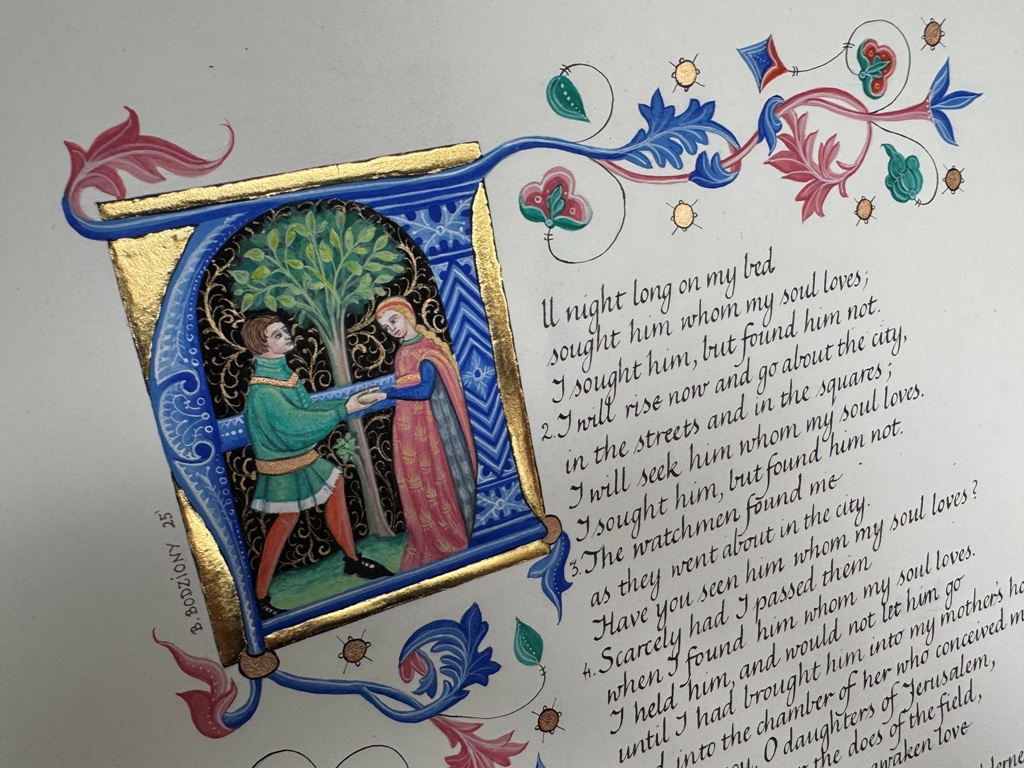 B. BODZIONY 25'
All night long on my bed
sought him whom my soul loves;
I sought him, but found him not.
2. I will rise now and go about the city,
in the streets and in the squares;
I will seek him whom my soul loves.
I sought him, but found him not.
3. The watchmen found me
as they went about in the city.
Have you seen him whom my soul loves?
4. Scarcely had I passed them
when I found him whom my soul loves.
I held him, and would not let him go
until I had brought him into my mother's
into the chamber of her who conceived
O daughters of Jerusalem,
the does of the field,
awaken love